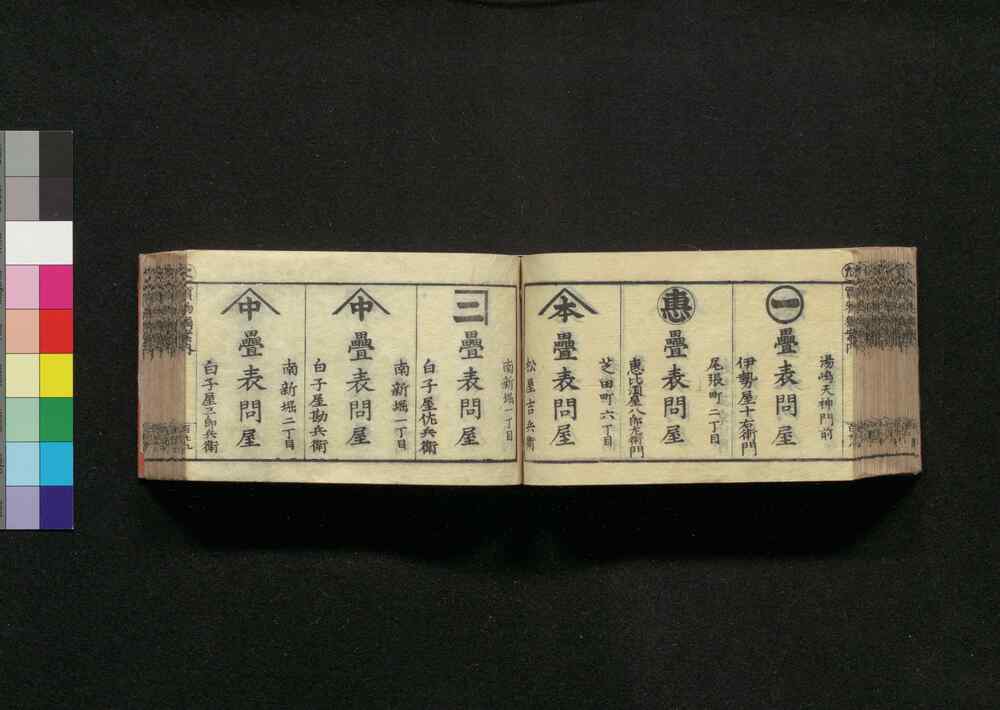 湯嶋天神門前
一
疊表問屋
伊勢屋十右衛門
尾張町二丁目
惠
疊表問屋
惠比須屋八郎左衛門
芝田町六丁目
本
疊表問屋
松屋吉兵衛
南新堀一丁目
三
疊表問屋
白子屋佐兵衛
南新堀一丁目
中
疊表問屋
白子屋勘兵衛
南新堀二丁目
中
疊表問屋
白子屋三郎兵衛